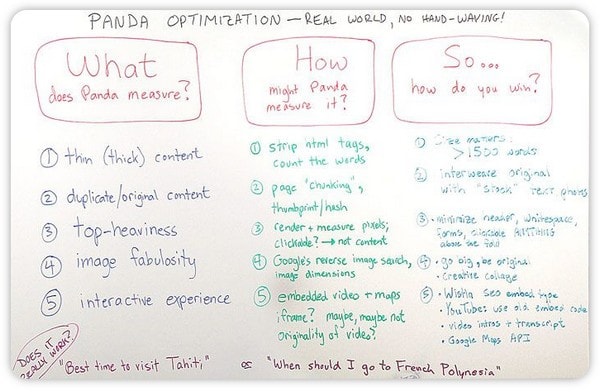 PANDA OPTIMIZATION — REAL WORLD, NO HAND-WAVING!
What
does Panda measure?
① thin (thick) content
② duplicate/original content
③ top-heaviness
④ image fabulosity
⑤ interactive experience
How
might Panda
measure it?
① strip html tags,
count the words
② page "chunking",
thumbprint/hash
③ render + measure pixels;
clickable? → not content
④ Google's reverse image search,
image dimensions
⑤ embedded video + maps
iframe? maybe, maybe not
originality of video?
So...
how do you win?
① Size matters:
>1500 words
② interweave original
with "stock" text
③ • minimize header, whitespace,
forms, clickable ANYTHING
above the fold
④ • go big, be original
• creative collage
⑤ • Wistia seo embed type
• YouTube: use old embed code
• video intros + transcript
• Google Maps API
DOES IT
REALLY WORK?
"Best time to visit Tahiti," or "When should I go to French Polynesia"